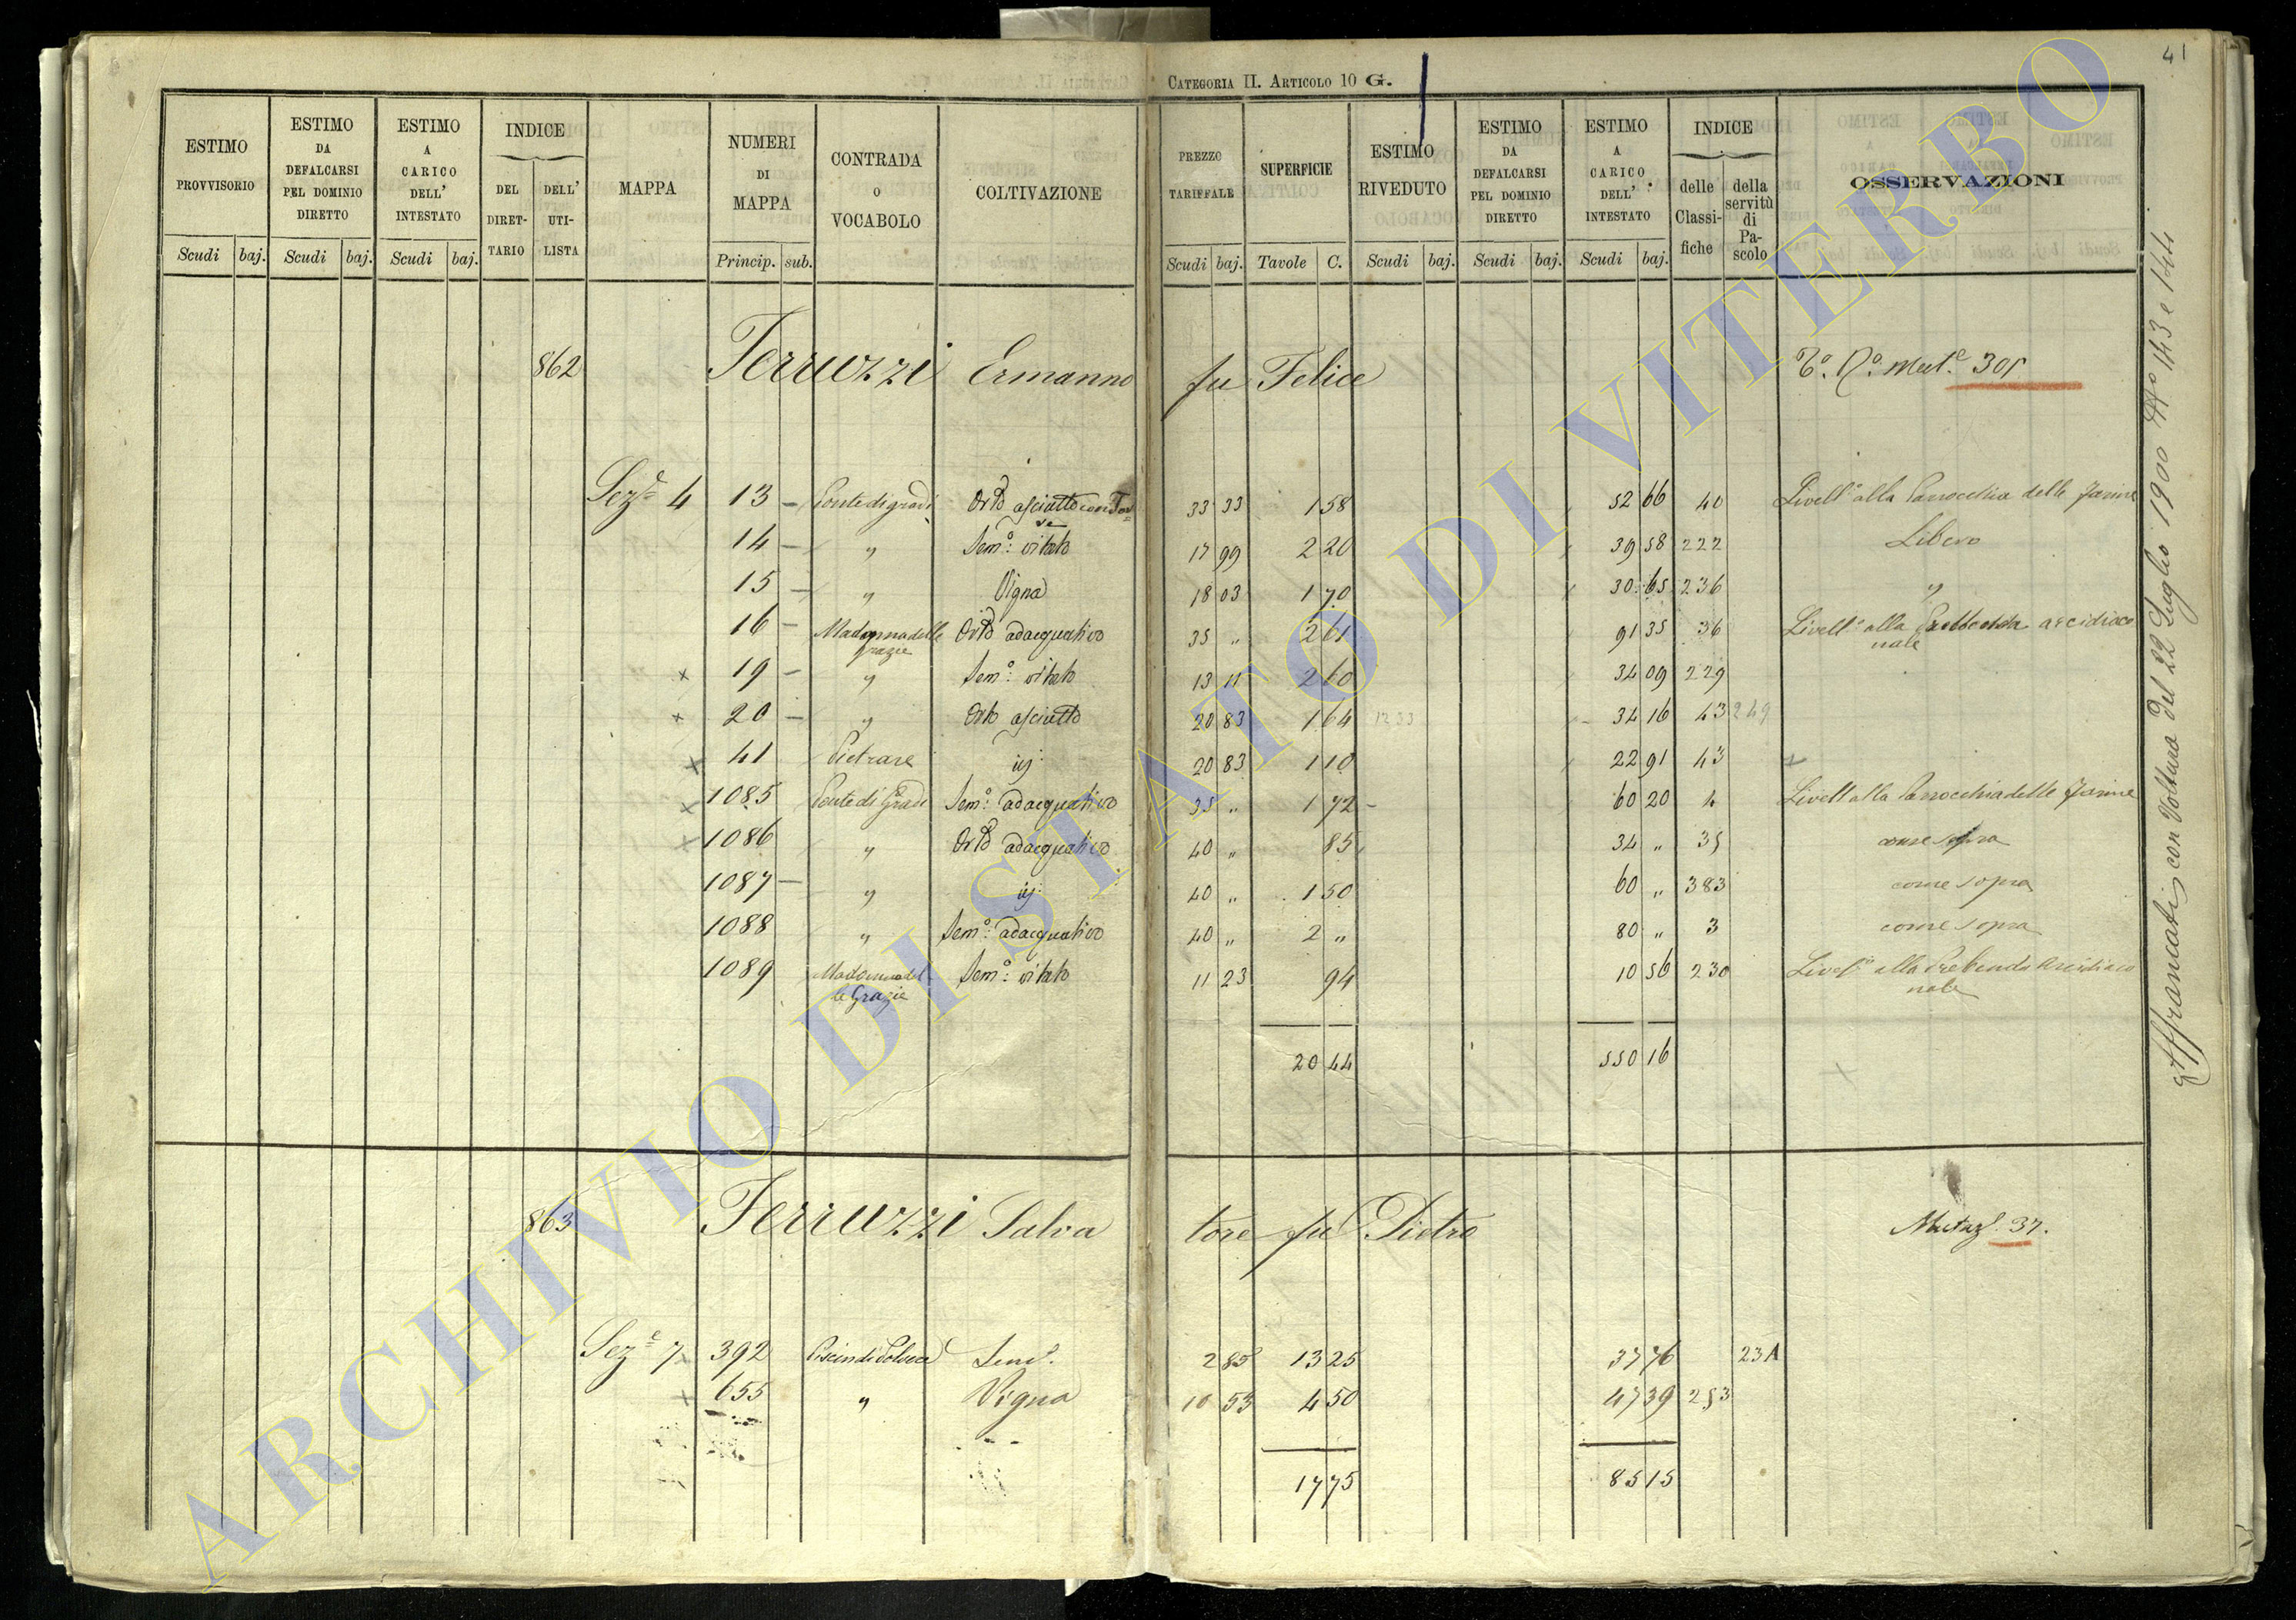 41
CATEGORIA II. ARTICOLO 10 G.
ESTIMO PROVVISORIO
Scudi baj.
ESTIMO DA DEFALCARSI PEL DOMINIO DIRETTO
Scudi baj.
ESTIMO A CARICO DELL' INTESTATO
Scudi baj.
INDICE
DEL DIRET-TARIO
DELL' UTI-LISTA
MAPPA
NUMERI DI MAPPA
Princip. sub.
CONTRADA o VOCABOLO
COLTIVAZIONE
PREZZO TARIFFALE
Scudi baj.
SUPERFICIE
Tavole C.
ESTIMO RIVEDUTO
Scudi baj.
ESTIMO DA DEFALCARSI PEL DOMINIO DIRETTO
Scudi baj.
ESTIMO A CARICO DELL' INTESTATO
Scudi baj.
INDICE
delle Classi-fiche
della servitù di Pa-scolo
OSSERVAZIONI
862 Ferruzzi Ermanno fu Felice
Sez.e 4 13 – Ponte di gradi Orto asciutto con 33 33 1 58 52 66 40 Livell.o alla Parrocchia delle Farine
14 – " Sem.o: vitato 17 99 2 20 39 58 222 Libero
15 – " Vigna 18 03 1 70 30 65 236 "
16 – Madonna delle grazie Orto adacquativo 35 " 2 61 91 35 36 Livell.o alla arcidiaconale
x 19 – " Sem.o: vitato 13 11 2 60 34 09 229
x 20 – " Orto asciutto 20 83 1 64 34 16 43 249
x 41 Pietrare 20 83 1 10 22 91 43
x 1085 Ponte di Gradi Sem.o: adacquativo 35 " 1 72 – 60 20 4 Livell alla Parrocchia delle Farine
x 1086 " Orto adacquativo 40 " 85 34 " 35 come sopra
1087 – " 40 " 1 50 60 " 383 come sopra
1088 " Sem.o: adacquativo 40 " 2 " 80 " 3 come sopra
1089 Madonna delle Grazie Sem.o: vitato 11 23 94 10 56 230 Livell.o alla Prebenda Arcidiaconale
20 44 550 16
Affrancati con Voltura del 22 Luglio 1900 N.o 143 e 144
863 Ferruzzi Salvatore fu Pietro
Sez.e 7 392 Sem.o 2 85 13 25 37 76 23A
x 655 " Vigna 10 53 4 50 47 39 253
17 75 85 15
ARCHIVIO DI STATO DI VITERBO